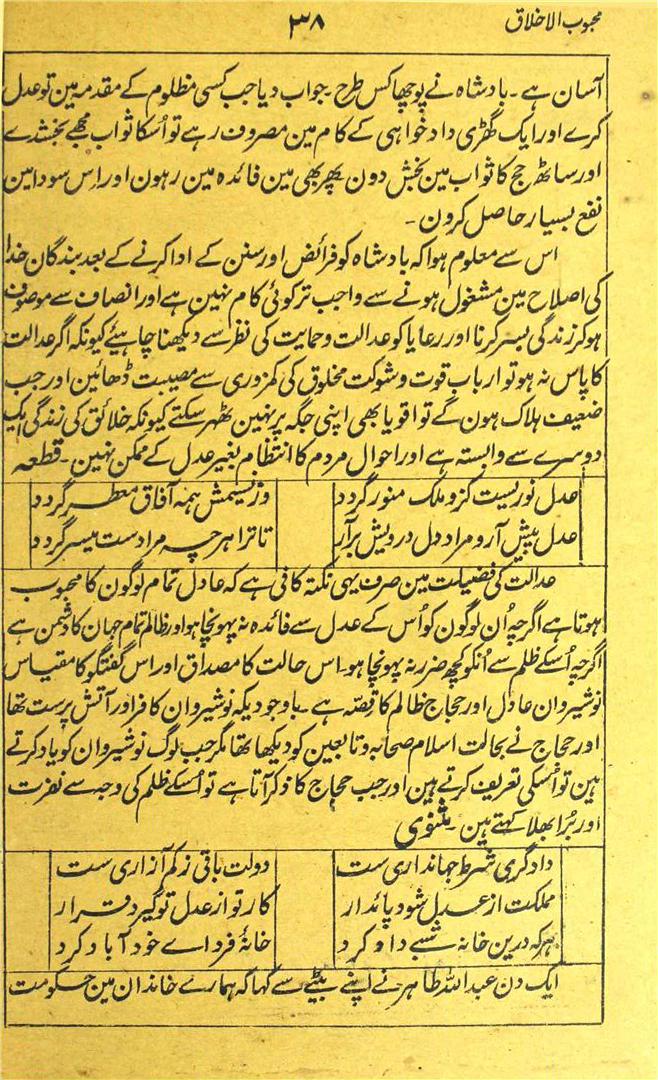 محبوب الاخلاق
۳۸
آسان ہے۔ بادشاہ نے پوچھا کس طرح۔ جواب دیا جب کسی مظلوم کے مقدمہ مین تو عدل
کرے اور ایک گھڑی داد خواہی کے کام مین مصروف رہے تو اُسکا ثواب مجھے بخشدے
اور ساٹھ حج کا ثواب مین بخش دون پھر بھی مین فائدہ مین رہون اور اس سودا مین
نفع بسیار حاصل کرون۔
اس سے معلوم ہوا کہ بادشاہ کو فرائض اور سنن کے ادا کرنے کے بعد بندگان خدا
کی اصلاح مین مشغول ہونے سے واجب تر کوئی کام نہین ہے اور انصاف سے موصوف
ہو کر زندگی بسر کرنا اور رعایا کو عدالت و حمایت کی نظر سے دیکھنا چاہیئے کیونکہ اگر عدالت
کا پاس نہ ہو تو ارباب قوت و شوکت مخلوق کی کمزوری سے مصیبت ڈھائین اور جب
ضعیف ہلاک ہون گے تو اقویا بھی اپنی جگہ پر نہین ٹھہر سکتے کیونکہ خلائق کی زندگی ایک
دوسرے سے وابستہ ہے اور احوال مردم کا انتظام بغیر عدل کے ممکن نہین۔ قطعہ
عدل نوریست کزو ملک منور گردد وز نسیمش ہمہ آفاق معطر گردد
عدل پیش آر و مراد دل درویش برآر تا ترا ہرچہ مرادست میسر گردد
عدالت کی فضیلت مین صرف یہی نکتہ کافی ہے کہ عادل تمام لوگون کا محبوب
ہوتا ہے اگرچہ اُن لوگون کو اُس کے عدل سے فائدہ نہ پہونچا ہو اور ظالم تمام جہان کا دشمن ہے
اگرچہ اُسکے ظلم سے اُنکو کچھ ضرر نہ پہونچا ہو۔ اس حالت کا مصداق اور اس گفتگو کا مقیاس
نوشیروان عادل اور حجاج ظالم کا قصّہ ہے۔ باوجودیکہ نوشیروان کافر اور آتش پرست تھا
اور حجاج نے بحالت اسلام صحابہ و تابعین کو دیکھا تھا مگر جب لوگ نوشیروان کو یاد کرتے
ہین تو اُسکی تعریف کرتے ہین اور جب حجاج کا ذکر آتا ہے تو اُسکے ظلم کی وجہ سے نفرت
اور بُرا بھلا کہتے ہین۔ مثنوی
دادگری شرط جہانداری ست دولت باقی ز کم آزاری ست
مملکت از عدل شود پائدار کار تو از عدل تو گیرد قرار
ہر کہ درین خانہ شبے داد کرد خانۂ فرداے خود آباد کرد
ایک دن عبداللہ طاہر نے اپنے بیٹے سے کہا کہ ہمارے خاندان مین حکومت